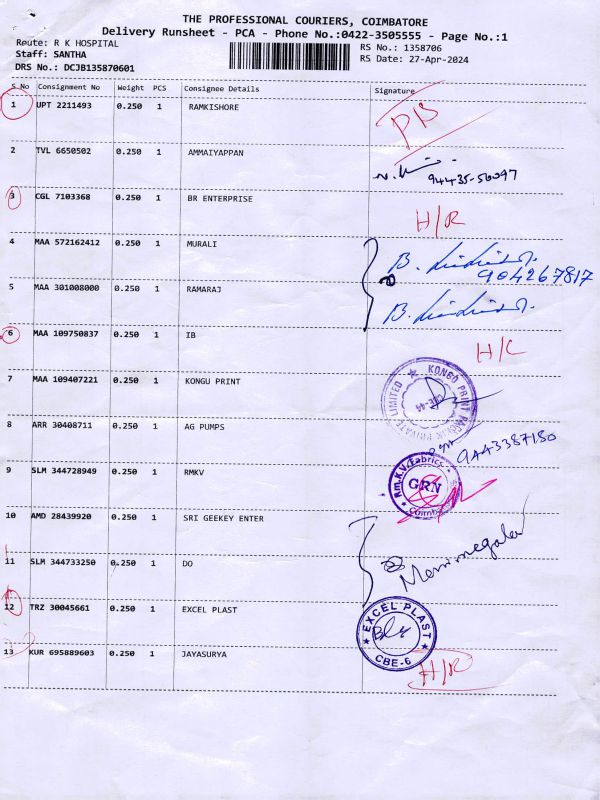 THE PROFESSIONAL COURIERS, COIMBATORE
Delivery Runsheet - PCA - Phone No.:0422-3505555 - Page No.:1
Route: R K HOSPITAL
Staff: SANTHA
DRS No.: DCJB135870601
RS No.: 1358706
RS Date: 27-Apr-2024
S No Consignment No Weight PCS Consignee Details Signature
1 UPT 2211493 0.250 1 RAMKISHORE
2 TVL 6650502 0.250 1 AMMAIYAPPAN
94435-56097
3 CGL 7103368 0.250 1 BR ENTERPRISE H/R
4 MAA 572162412 0.250 1 MURALI
904267817
5 MAA 301008000 0.250 1 RAMARAJ
6 MAA 109750837 0.250 1 IB H/C
7 MAA 109407221 0.250 1 KONGU PRINT
KONGO PRINT PACK PRIVATE LIMITED
CBE-44
8 ARR 30408711 0.250 1 AG PUMPS
9443387180
9 SLM 344728949 0.250 1 RMKV
Rm.K.V. Fabrics
GRN
10 AMD 28439920 0.250 1 SRI GEEKEY ENTER
11 SLM 344733250 0.250 1 DO
12 TRZ 30045661 0.250 1 EXCEL PLAST
EXCEL PLAST
CBE-6
13 KUR 695889603 0.250 1 JAYASURYA H/R